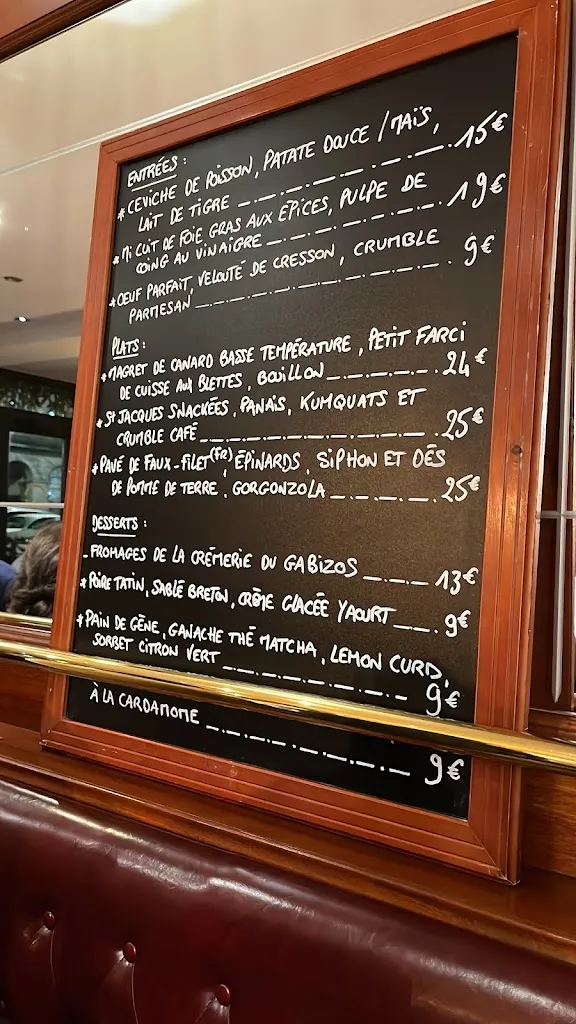 ENTRÉES :
* CEVICHE DE POISSON, PATATE DOUCE / MAÏS,
LAIT DE TIGRE 15€
* MI CUIT DE FOIE GRAS AUX EPICES, PULPE DE
COING AU VINAIGRE 19€
* OEUF PARFAIT, VELOUTÉ DE CRESSON, CRUMBLE
PARMESAN 9€
PLATS :
* MAGRET DE CANARD BASSE TEMPÉRATURE, PETIT FARCI
DE CUISSE AUX BLETTES, BOUILLON 24€
* St JACQUES SNACKÉES, PANAIS, KUMQUATS ET
CRUMBLE CAFÉ 25€
* PAVÉ DE FAUX-FILET (FR), ÉPINARDS, SIPHON ET DÉS
DE POMME DE TERRE, GORGONZOLA 25€
DESSERTS :
- FROMAGES DE LA CRÉMERIE DU GABIZOS 13€
* POIRE TATIN, SABLÉ BRETON, CRÈME GLACÉE YAOURT 9€
* PAIN DE GÊNE, GANACHE THÉ MATCHA, LEMON CURD,
SORBET CITRON VERT 9€
À LA CARDAMOME 9€